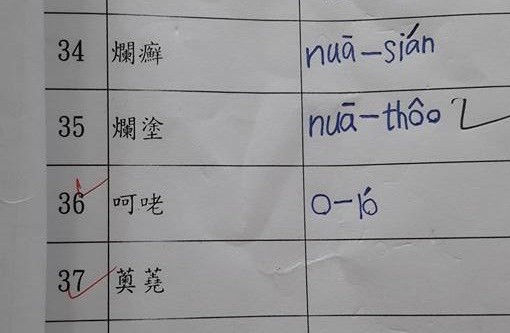 34 爛癬 nuā-sián
35 爛塗 nuā-thôo
36 呵咾 o-ló
37 薁蕘